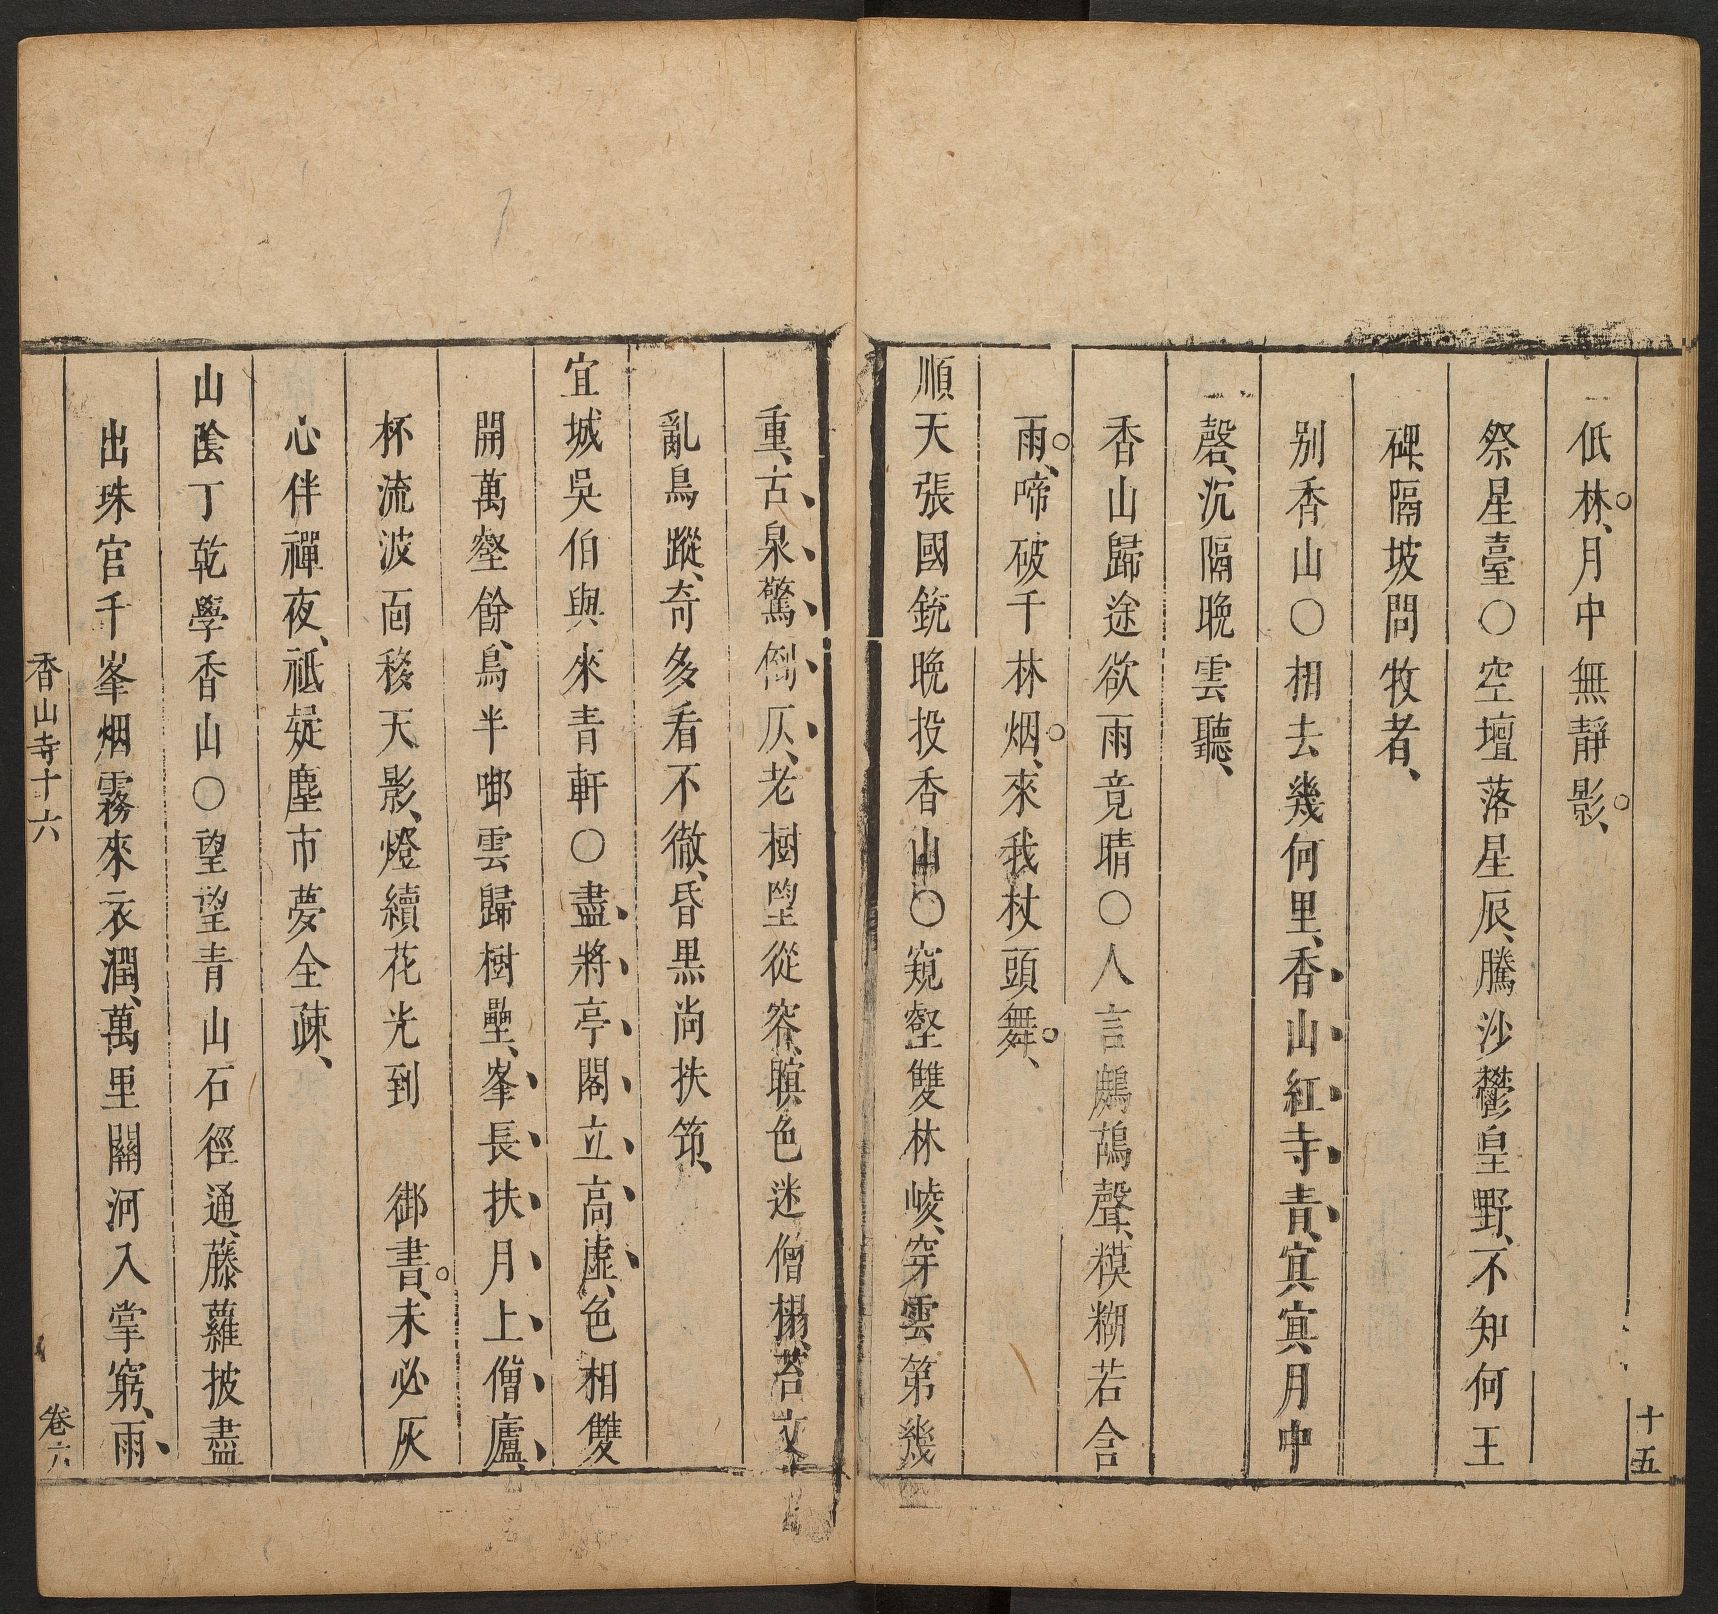 低林、月中無靜影、
祭星臺○空壇落星辰、騰沙鬱皇野、不知何王
碑、隔坡問牧者、
别香山○相去幾何里、香山紅寺青、寘寘月中
磬、沉隔晩雲聽、
香山歸途欲雨竟晴○人言鷓鴣聲、糢糊若含
雨、啼破千林烟、來我杖頭舞、
順天張國銃晩投香山○窺壑雙林崚、穿雲第幾
十五
重、古泉驚倒仄、老樹墮從容、瞑色迷僧榻、苔文
亂鳥蹤、奇多看不徹、昏黒尚扶筇、
宜城吳伯與來青軒○盡將亭閣立高虛、色相雙
開萬壑餘、鳥半啣雲歸樹壘、峯長扶月上僧廬、
杯流波面移天影、燈續花光到　御書、未必灰
心伴禪夜、祗疑塵市夢全疎、
山陰丁乾學香山○望望青山石徑通、藤蘿披盡
出珠宮千峯烟霧來衣潤、萬里關河入掌窮、雨
香山寺十六
卷六